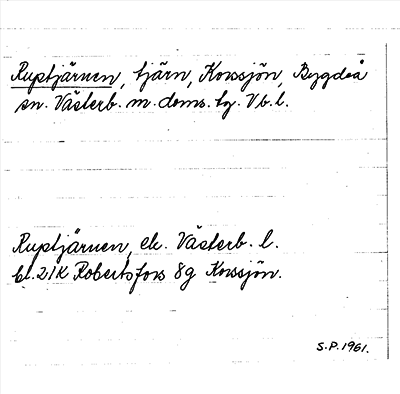 Ruptjärnen, tjärn, Korssjön, Bygdeå
sn. Västerb. m. doms. hg. Vb. l.
Ruptjärnen, ek. Västerb. l.
bl. 21K Robertsfors 8g Korssjön.
S.P. 1961.